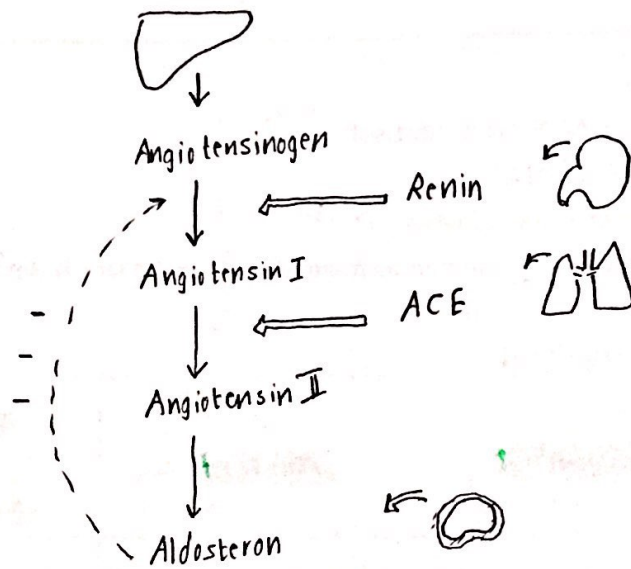 Angiotensinogen
Renin
Angiotensin I
ACE
Angiotensin II
Aldosteron